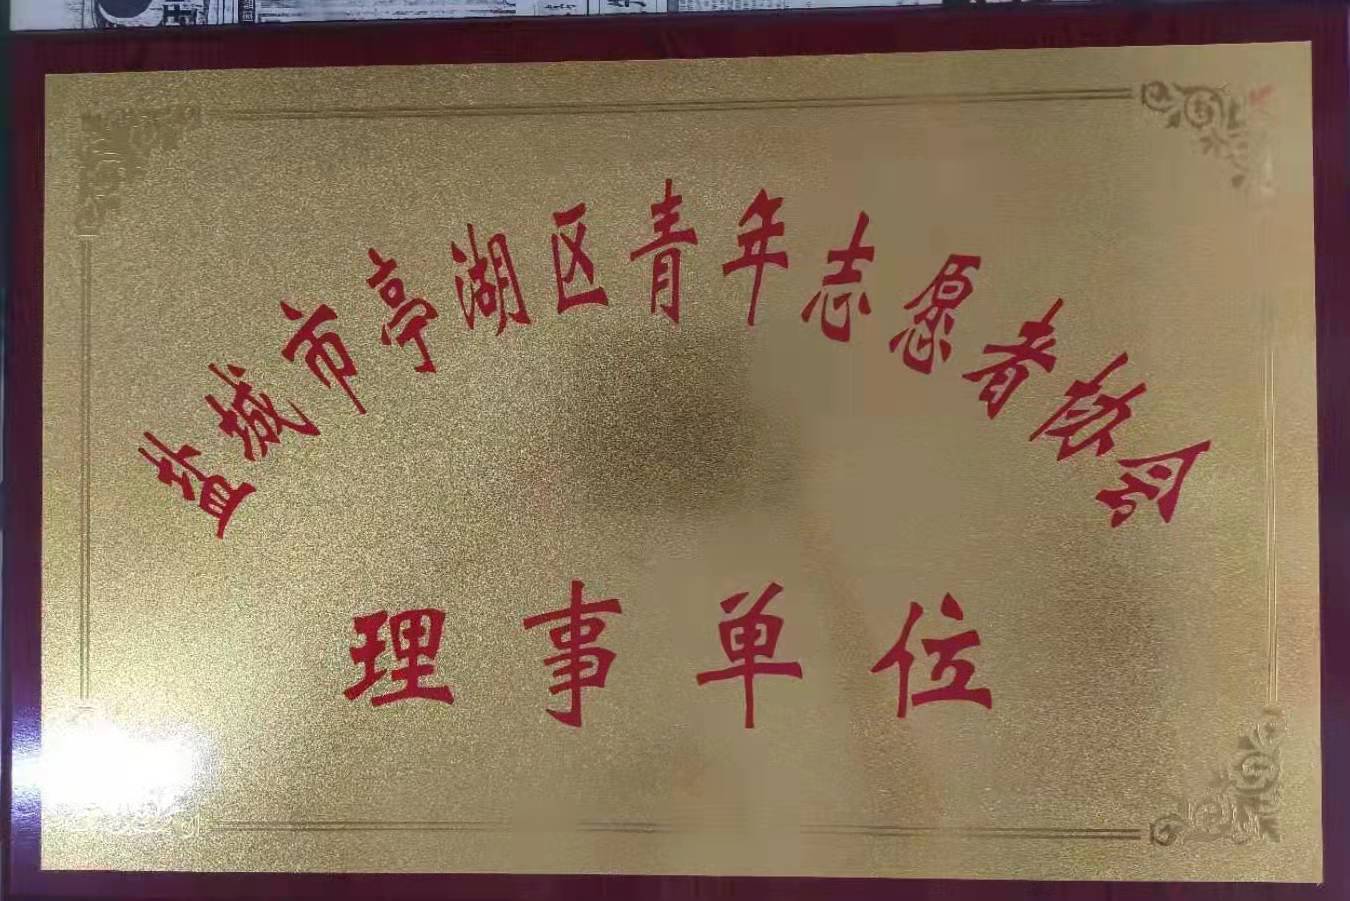 盐城市亭湖区青年志愿者协会
理事单位